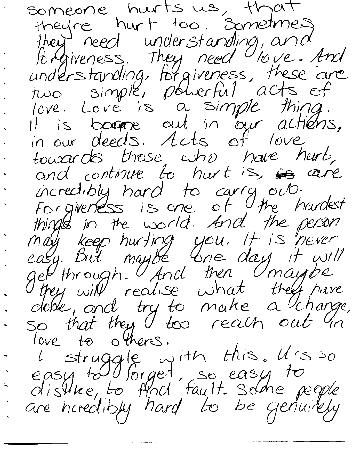 someone hurts us, that
they're hurt too. Sometimes
they need understanding, and
forgiveness. They need love. And
understanding, forgiveness, these are
two simple, powerful acts of
love. Love is a simple thing.
It is borne out in our actions,
in our deeds. Acts of love
towards those who have hurt,
and continue to hurt is, are
incredibly hard to carry out.
Forgiveness is one of the hardest
things in the world. And the person
may keep hurting you. It is never
easy. But maybe one day it will
get through. And then maybe
they will realise what they have
done, and try to make a change,
so that they too reach out in
love to others.
I struggle with this. It's so
easy to forget, so easy to
dislike, to find fault. Some people
are incredibly hard to be genuinely